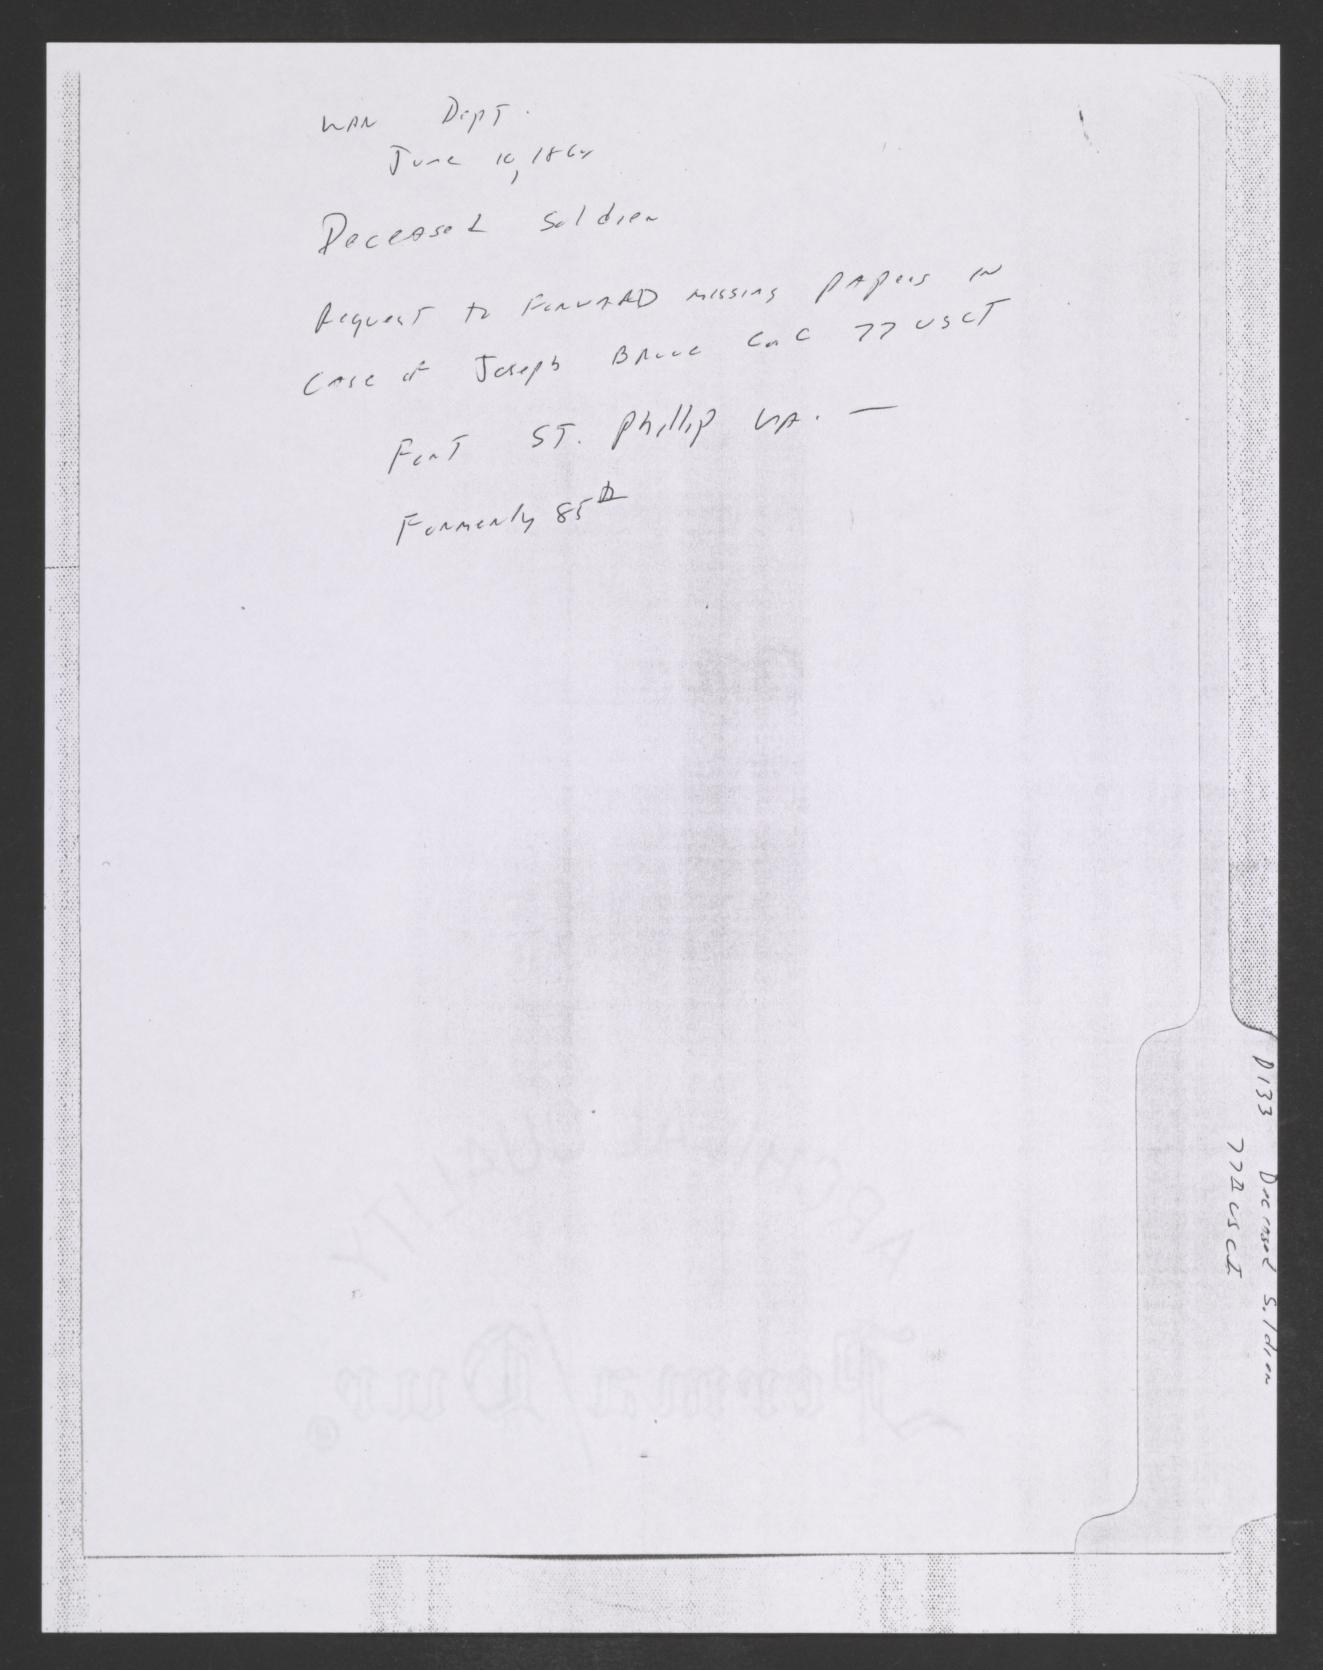 WAR Dept.
June 10, 1864
Deceased Soldier
Request to Forward missing papers in
Case of Joseph Bruce Co C 77 USCT
Fort St. Phillip LA. —
Formerly 85th
D133 Deceased Soldier
77th USCI
ARCHIVAL QUALITY
Perma/Dur®